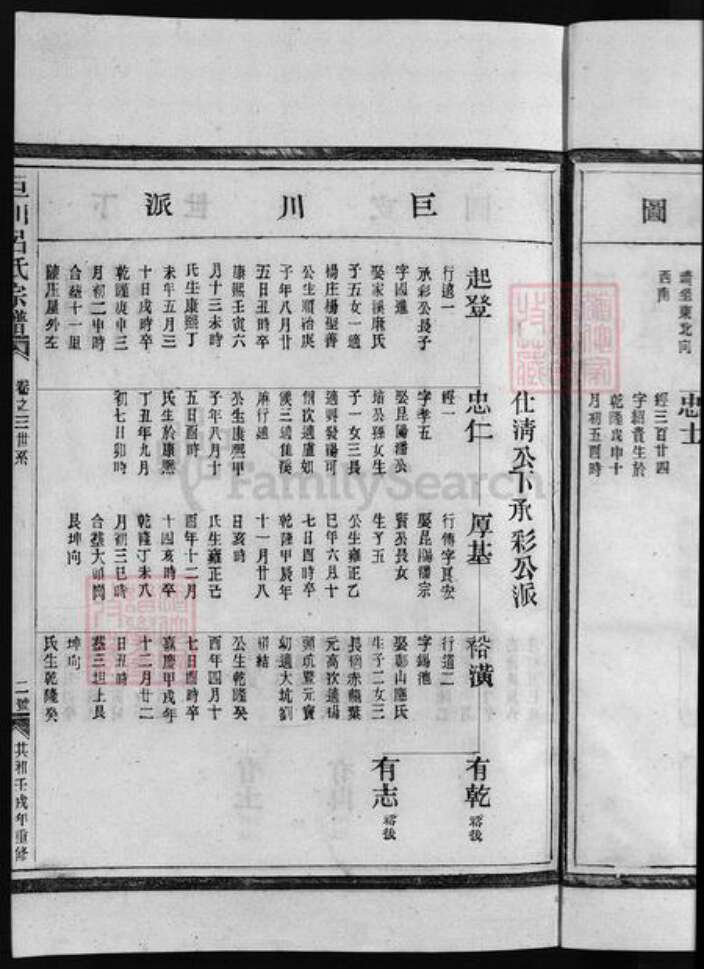 圖
西南
忠士
經三百廿四
字紹貴生於
乾隆戊申十
月初五酉時
巨川派
仕清公下承彩公派
起登
行逵一
承彩公長子
字國進
娶家溪康氏
子五女一適
楊庄楊聖善
公生順治庚
子年八月廿
五日丑時卒
康熙壬寅六
月十三未時
氏生康熙丁
未年五月三
十日戌時卒
乾隆庚申三
月初二申時
合塟十一里
忠仁
經一
字孝五
娶昆陽潘公
培公孫女生
子一女三長
適興發陽可
桐次適盧如
儀三適隹溪
麻行適
公生康熙甲
子年八月十
五日酉時
氏生於康熙
丁丑年九月
初七日卯時
厚基
行傳字真宏
娶昆陽潘宗
賢公長女
生子五
公生雍正乙
巳年六月十
七日酉時卒
乾隆甲辰年
十一月廿八
日亥時
氏生雍正己
酉年十二月
十四亥時卒
乾隆丁未八
月初三巳時
艮坤向
裕潢
行道二
字錫池
娶彭山應氏
生子二女三
長橋赤楓葉
元高次適楊
頭坑曁元寶
幼適大坑劉
公生乾隆癸
酉年四月十
七日酉時卒
嘉慶甲戌年
十二月廿二
日丑時
塟三坦上艮
坤向
氏生乾隆癸
有乾
裕後
有志
裕後
巨川呂氏宗譜
卷之三世系
二號
共和壬戌年重修
FamilySearch